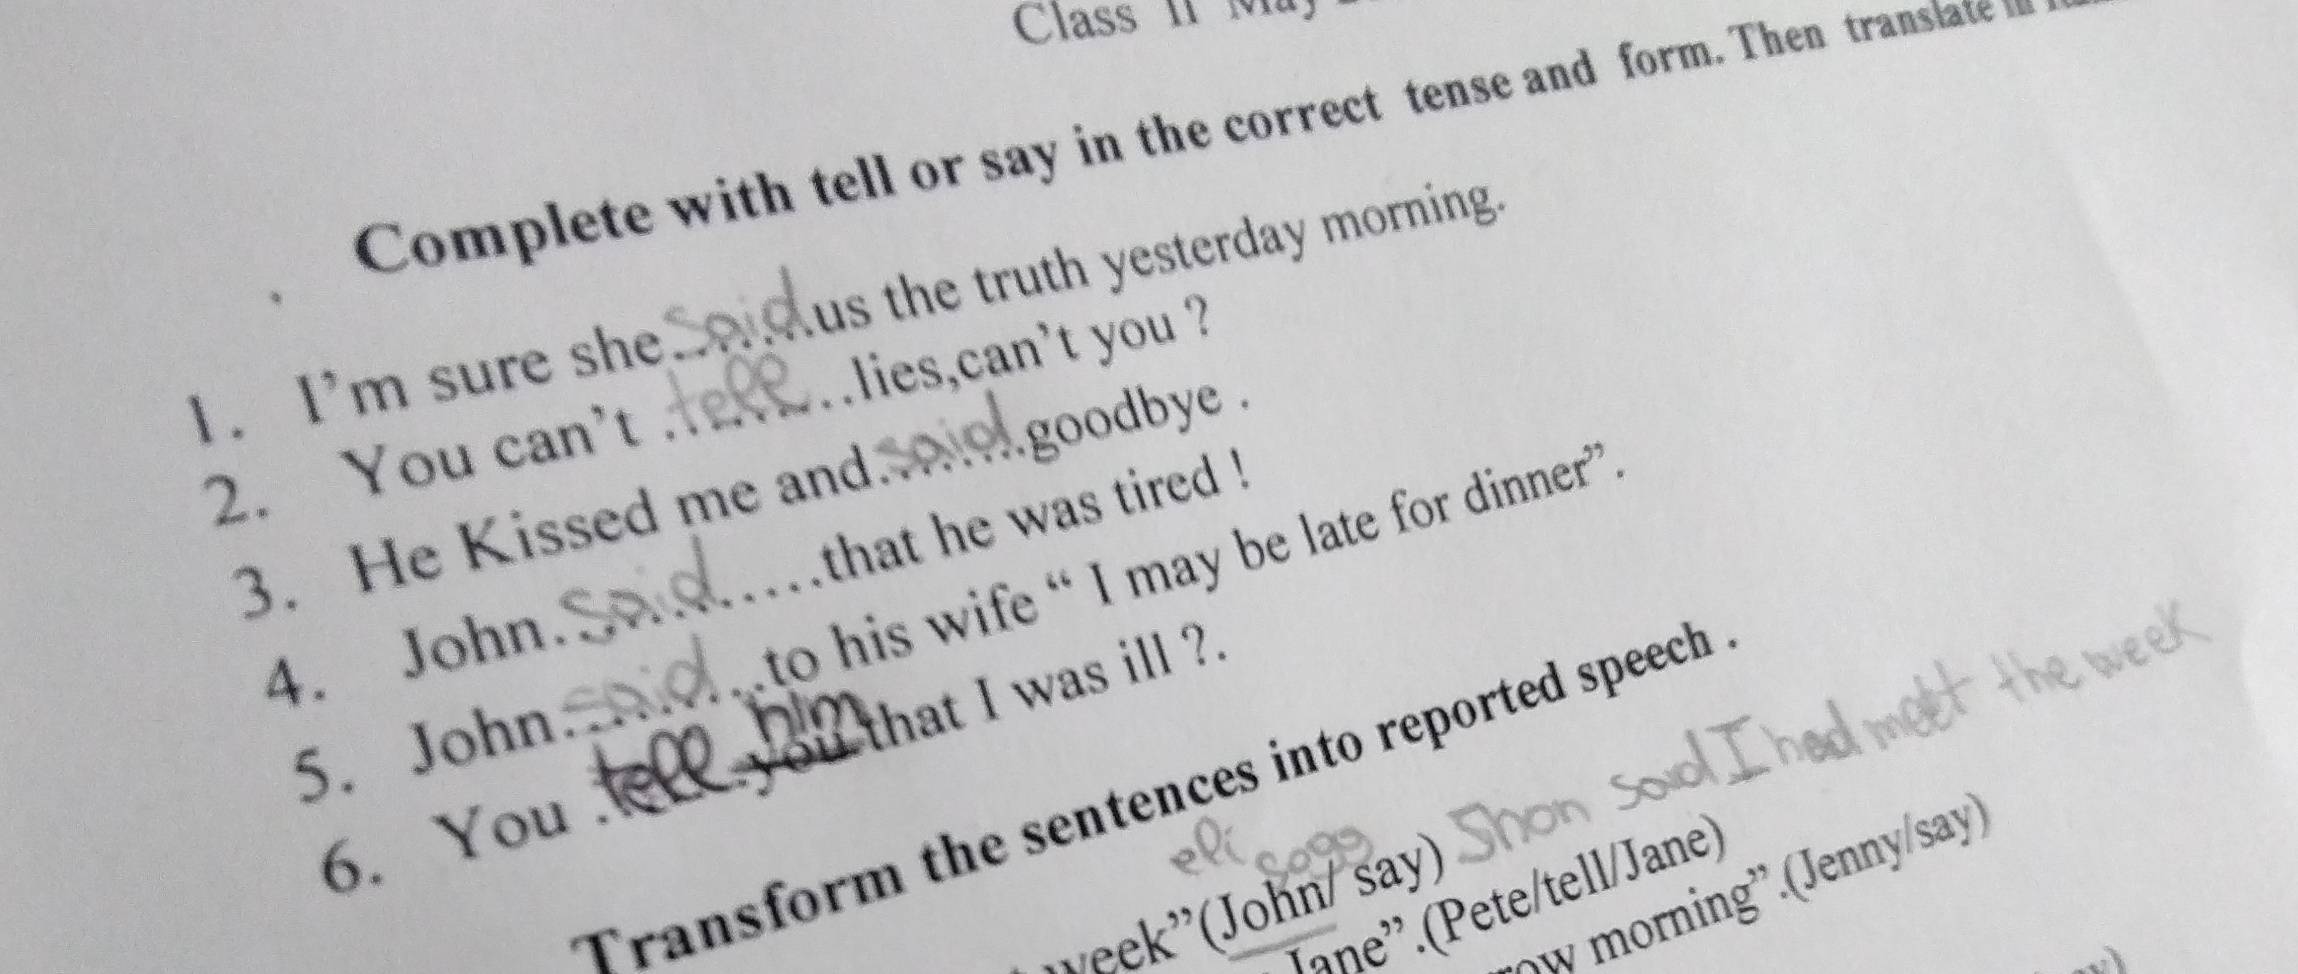 Class II May
Complete with tell or say in the correct tense and form. Then translate in
1. I'm sure she...said...us the truth yesterday morning.
2. You can't ..tell.....lies,can't you ?
3. He Kissed me and..said...goodbye .
4. John..said......that he was tired !
5. John..said...to his wife “ I may be late for dinner”.
6. You .tell..you him that I was ill ?.
Transform the sentences into reported speech .
eli sagg
week”(John/ say) Shon said I had meet the week
Jane”.(Pete/tell/Jane)
morning”.(Jenny/say)